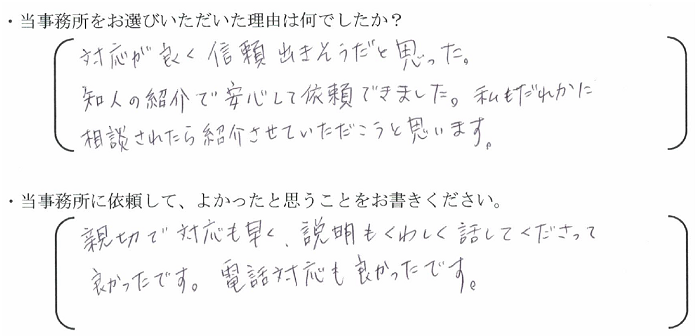 ・当事務所をお選びいただいた理由は何でしたか？
対応が良く信頼出きそうだと思った。
知人の紹介で安心して依頼できました。私もだれかに
相談されたら紹介させていただこうと思います。
・当事務所に依頼して、よかったと思うことをお書きください。
親切で対応も早く、説明もくわしく話してくださって
良かったです。電話対応も良かったです。